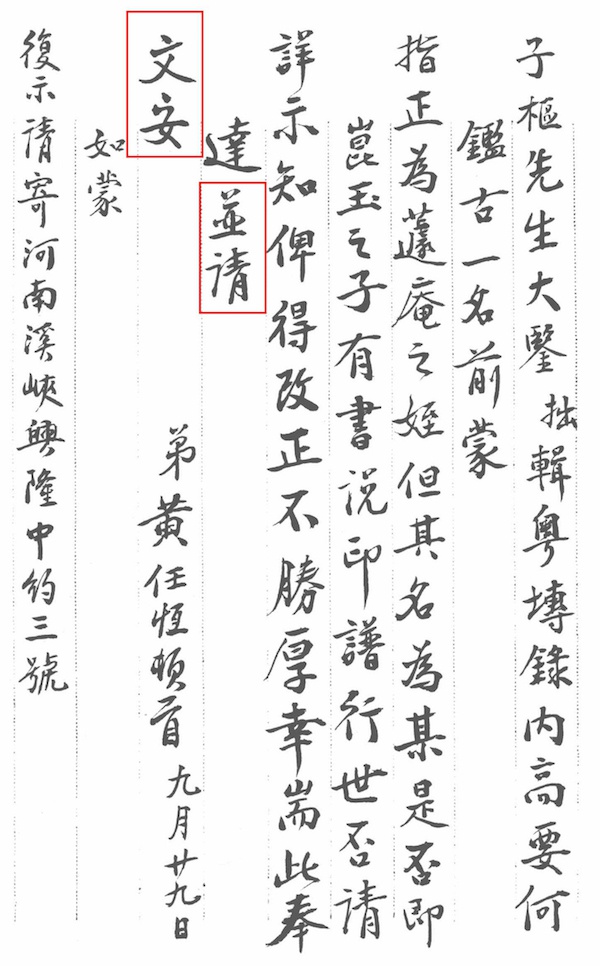 子樞先生大鑒 拙輯粵塼錄內高要何
鑑古一名前蒙
指正為蘧庵之姪但其名為某是否即
崑玉之子有書説印譜行世否請
詳示知俾得改正不勝厚幸耑此奉
達並请
文安
弟黃任恆頓首 九月廿九日
如蒙
復示請寄河南溪峽興隆中約三號